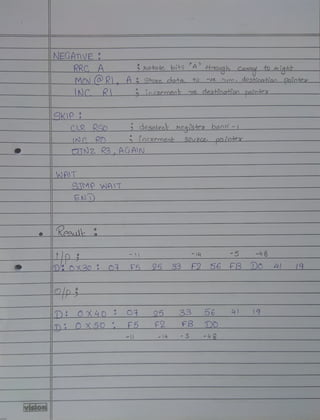 NEGATIVE :
RRC A ; rotate bits "A" through carry to right
MOV @R1, A ; Store data to -ve num. destination pointer
INC R1 ; increment -ve destination pointer
SKIP :
CLR RS0 ; deselect register bank-1
INC R0 ; increment source pointer
DJNZ R3, AGAIN
WAIT
SJMP WAIT
END
Result :
-11 -14 -5 -48
I/p ;
D: 0X30 : 07 F5 25 33 F2 56 FB D0 41 19
O/p ;
D: 0X40 : 07 25 33 56 41 19
D: 0X50 : F5 F2 FB D0
-11 -14 -5 -48
vision